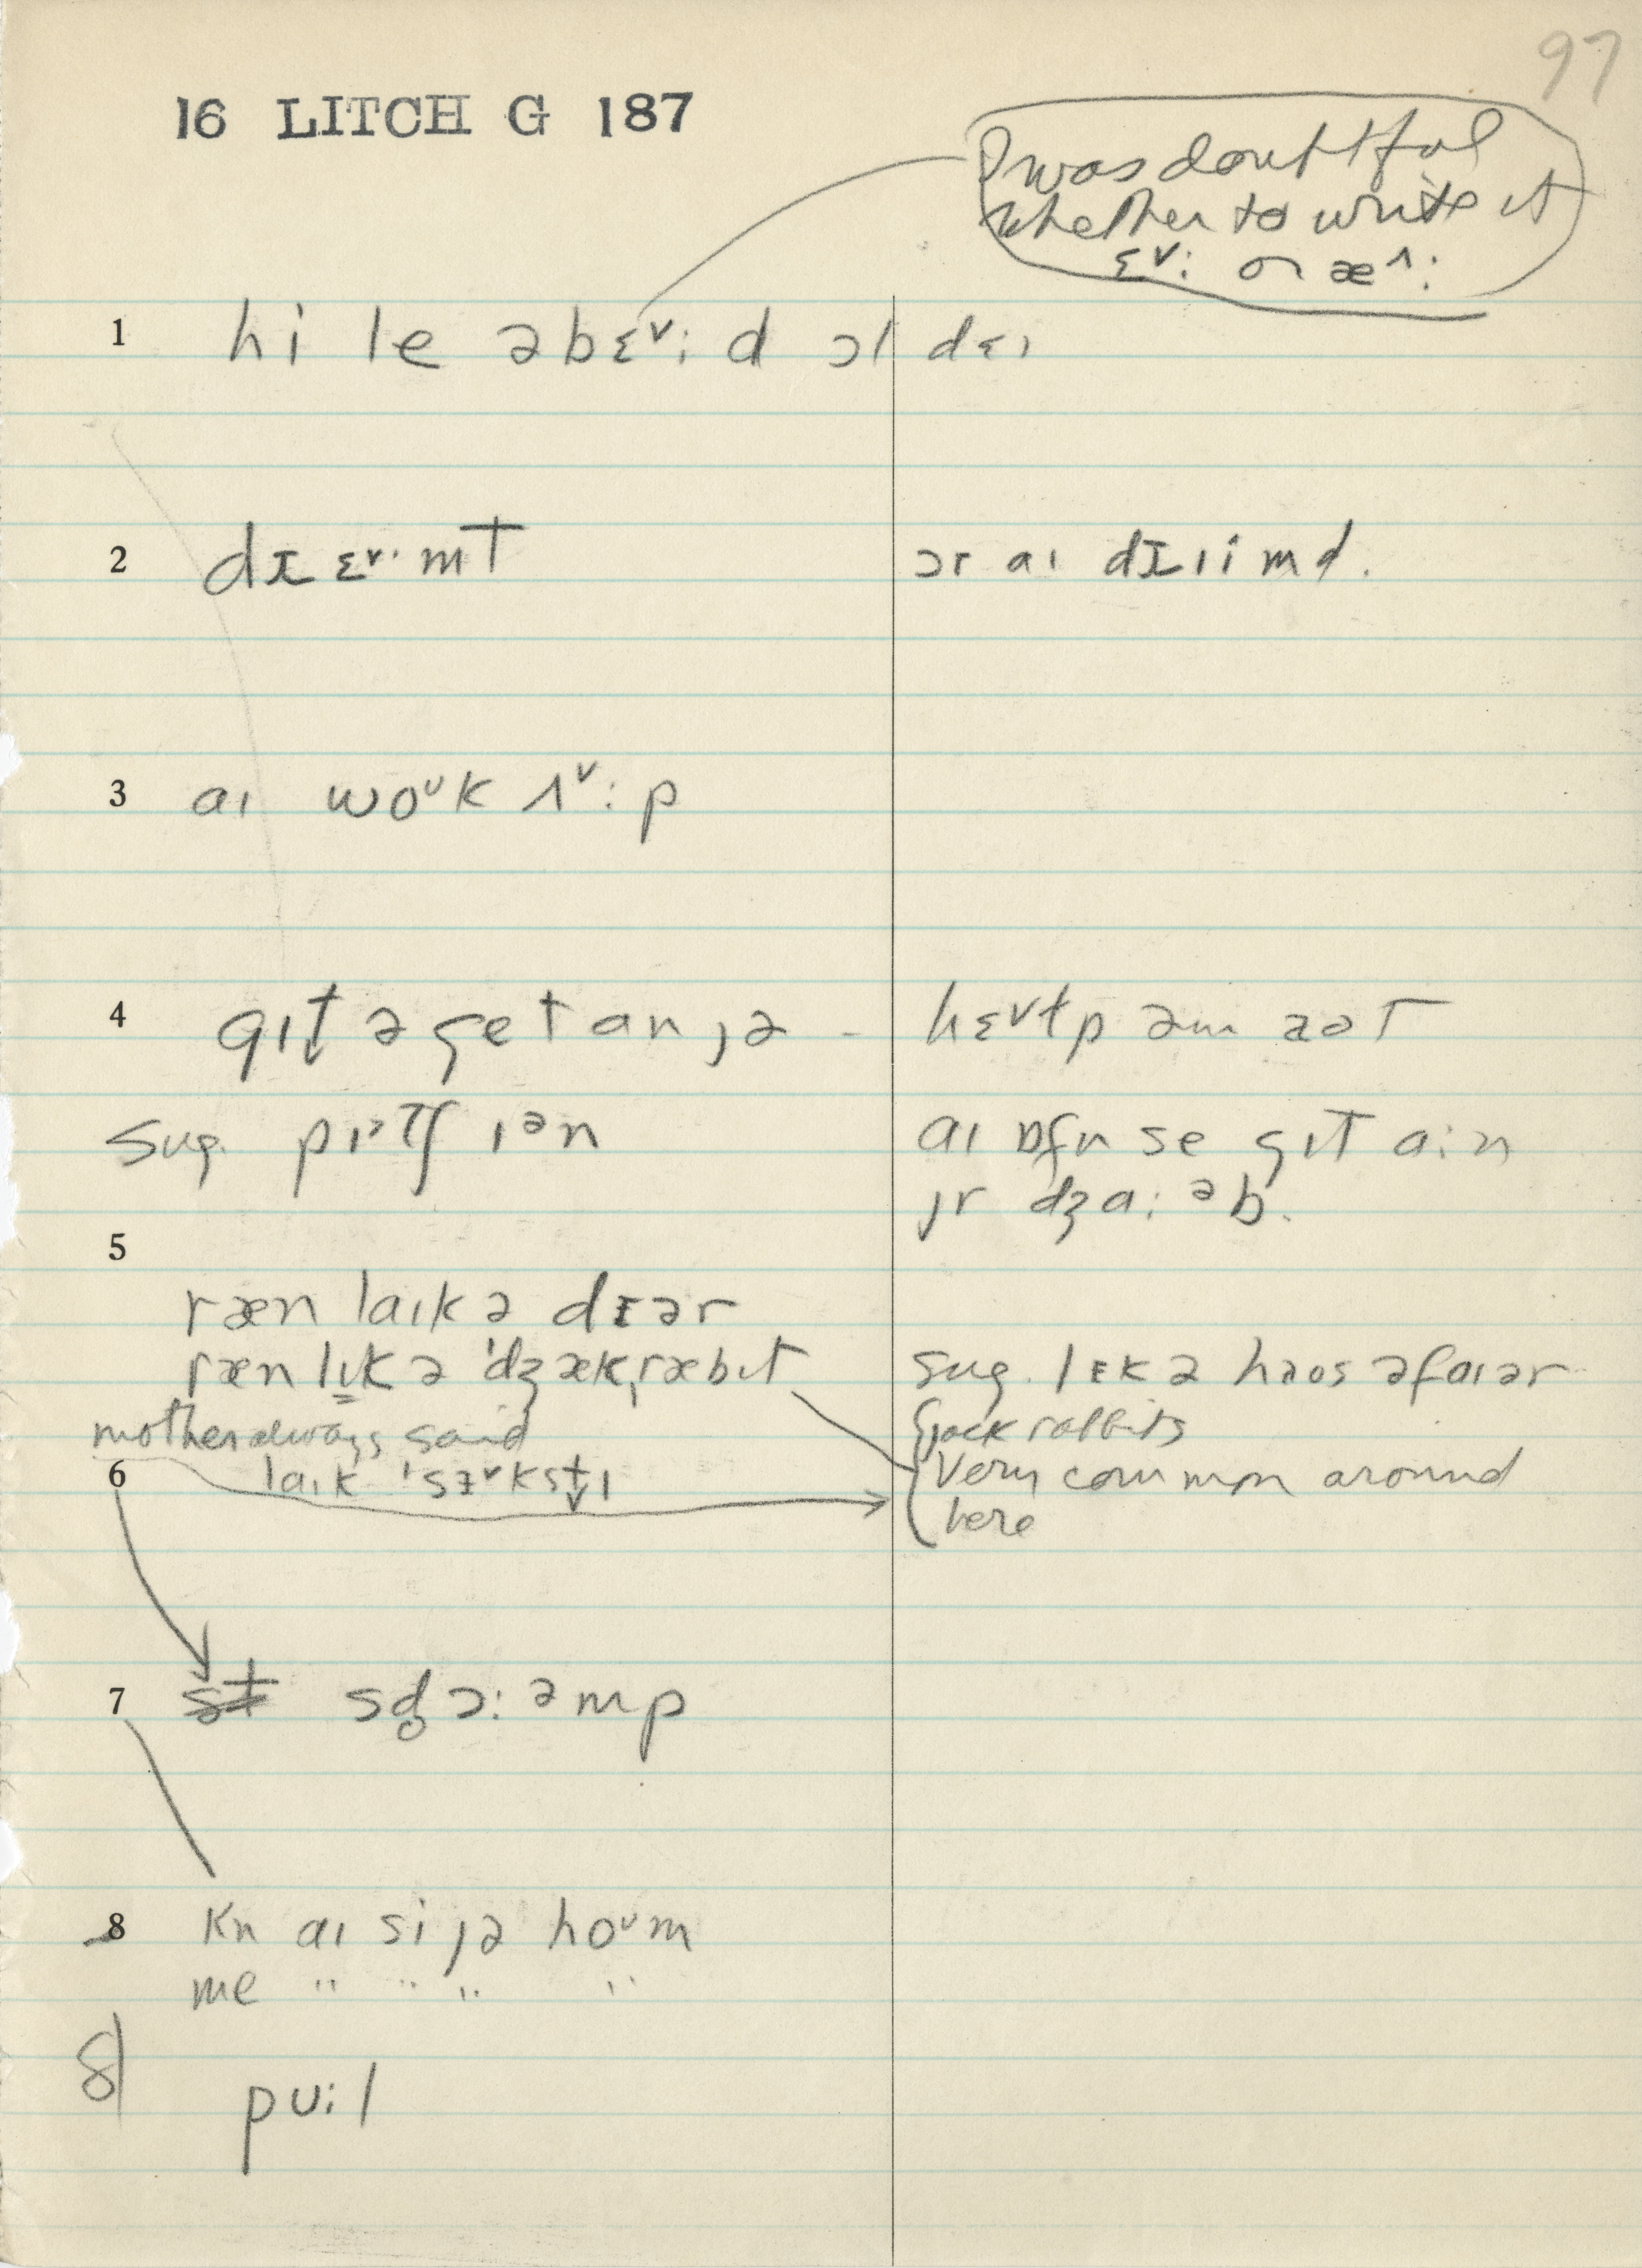 97
16 LITCH G 187
I was doubtful
whether to write it
ɛ˅: or æ˄:
1 hi le əbɛ˅:d ɔl dɛɪ
2 dɪɛ˅·mt ɔr aɪ dɪɪimd.
3 aɪ woᴜk ʌ˅:p
4 gɪt ə get an jə - hɛ˅ɫp əm aət
sug. pɪᵊtʃ ɪᵊn aɪ ɒfn se gɪt a:n
jr dʒa:ᵊb.
5
ræn laɪk ə dɪər
ræn lɪk ə 'dʒækˌræbɪt sug. lɪk ə haos əfaɪər
mother always said jack rabbits
6 laɪk 'sɜ˅kstɪ Very common around
here
7 st sd̥ɔ:ᵊmp
8 kn aɪ si jə hoᴜm
me " " " "
8 pʊ:l